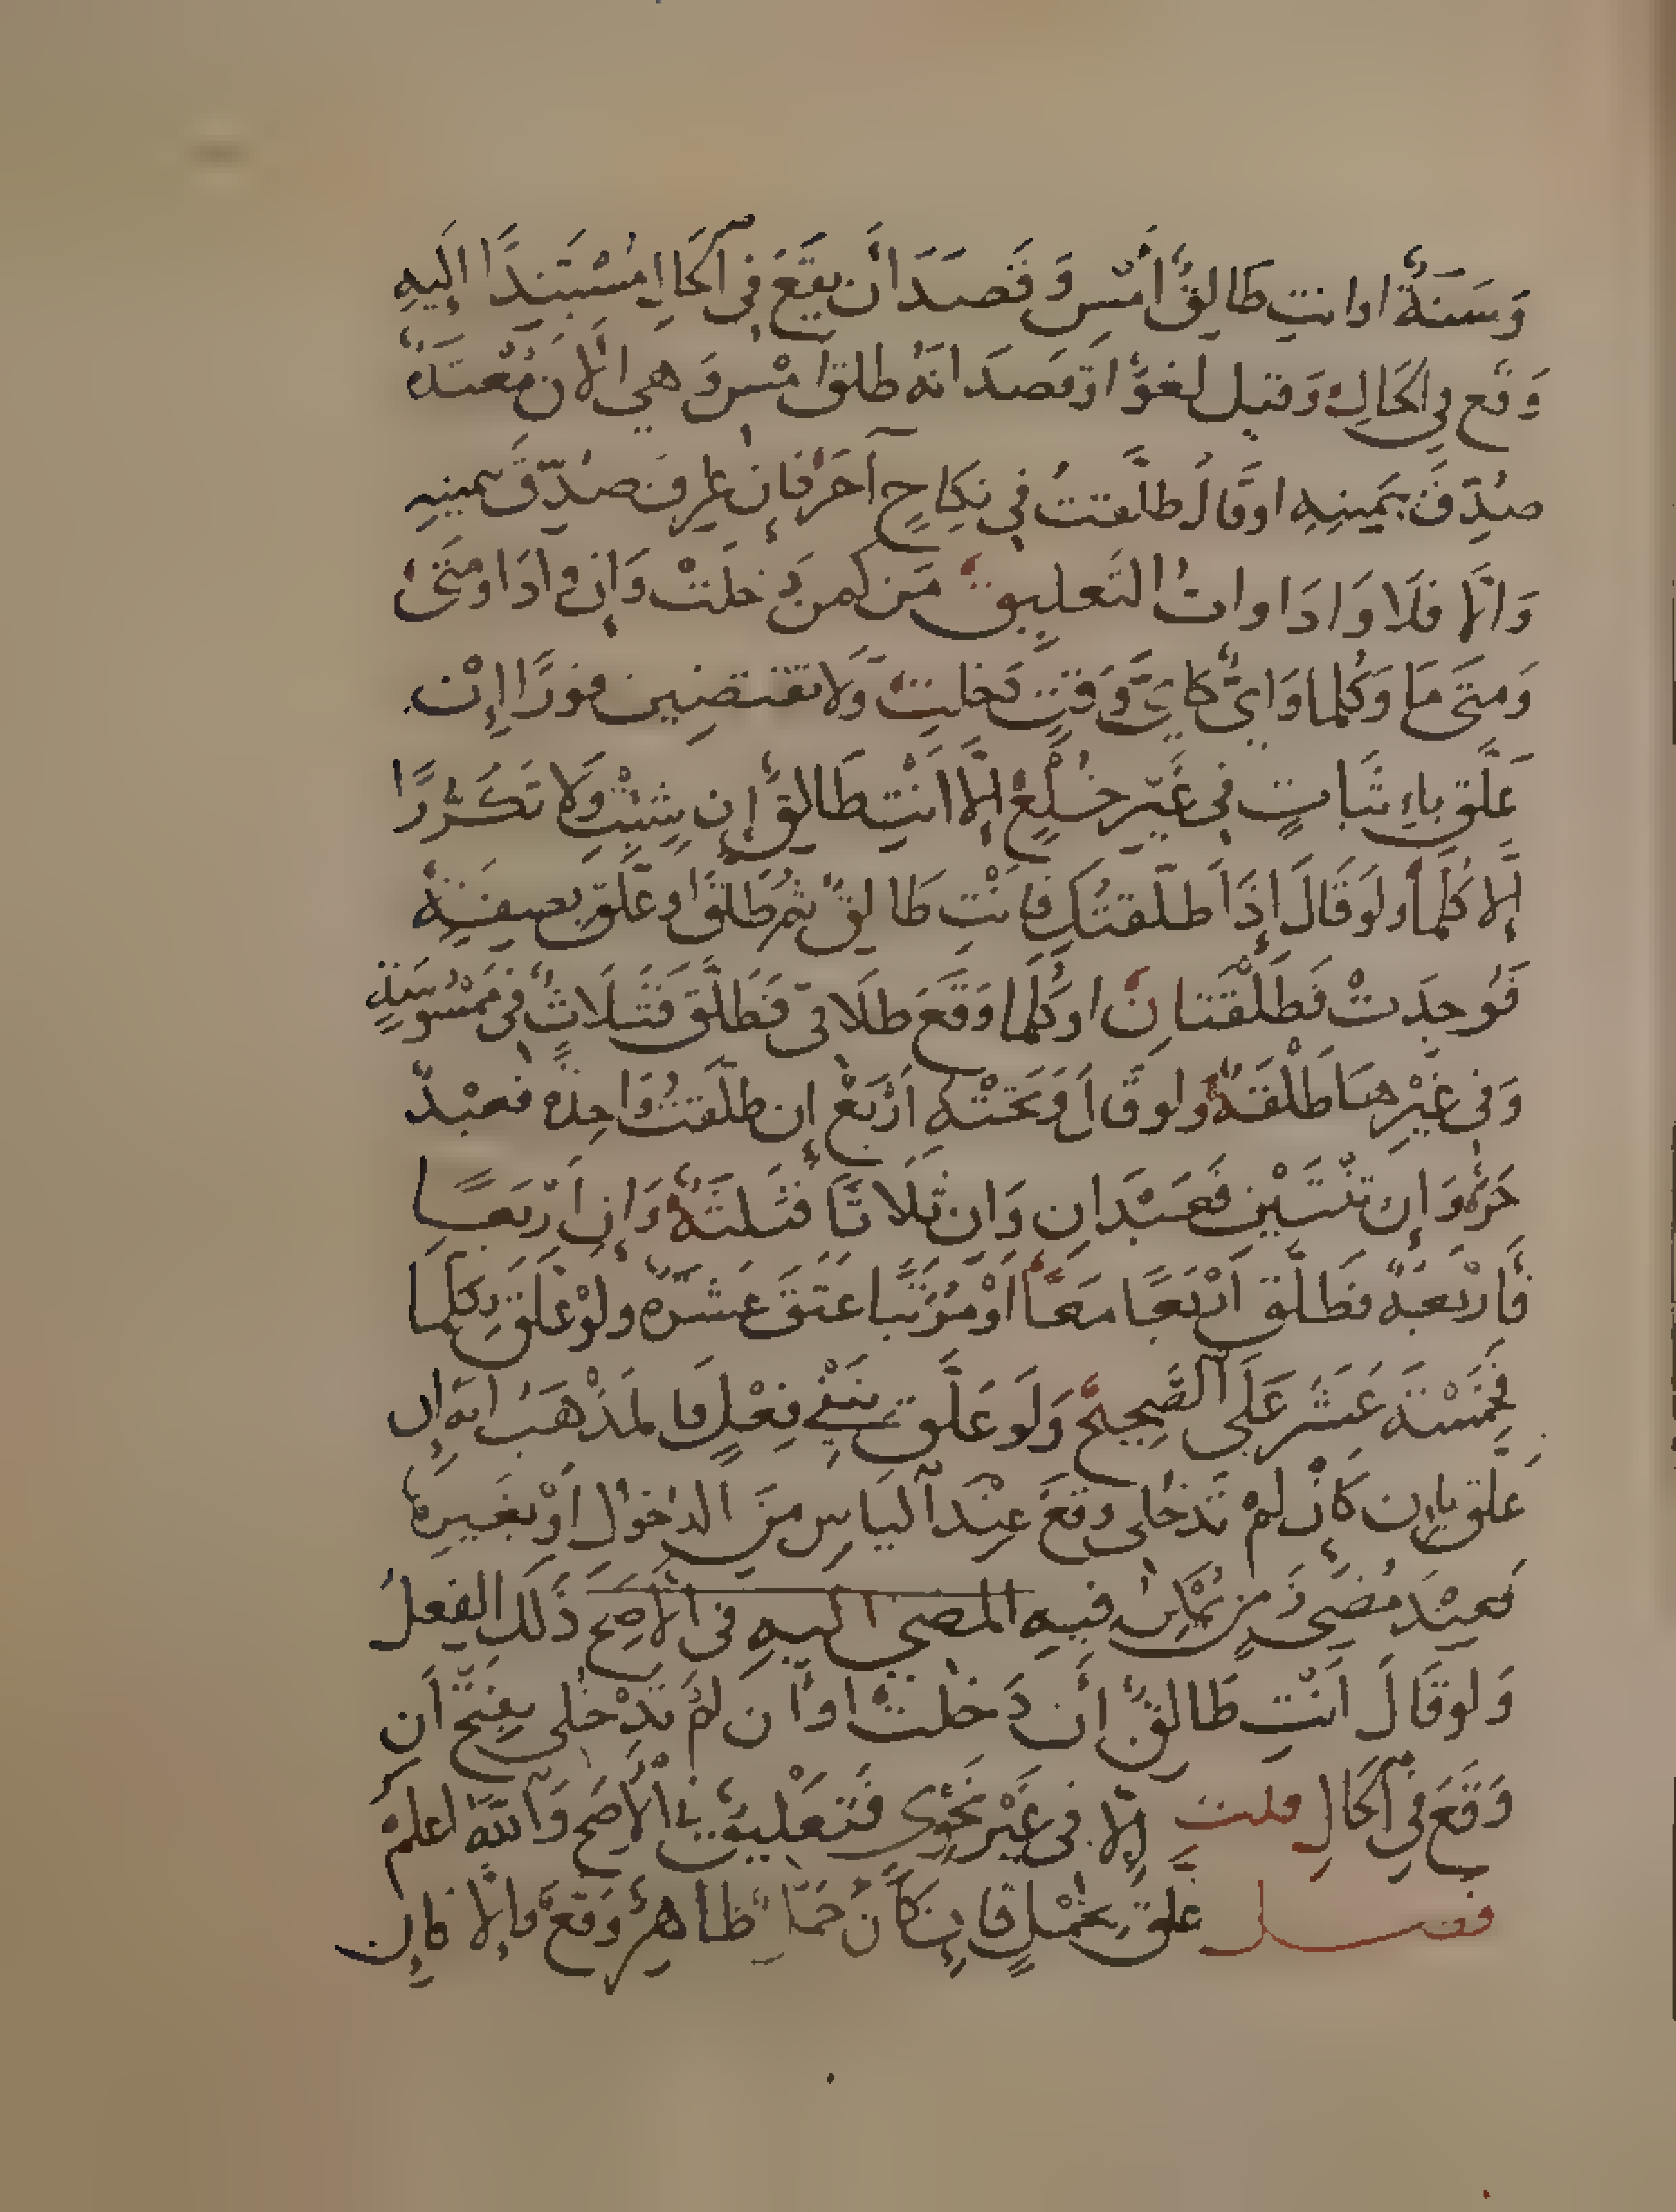 وَسَنَةٌ اوانتِ طَالِقٌ أَمْسِ وَقَصَدَ أَن يَقَعَ فِي الْحَالِ مُسْتَنِدًا إِلَيهِ
وَقَع فِي الْحَالِ وَقيل لغوٌ اوقَصَدَ انهُ طلق أمْسِ وَهي الْآن مُعْتَدَّةٌ
صُدِّقَ بيَمِينِهِ اوقَالَ طلَّقتُ فِي نِكَاحٍ آخَرَ فَإِن عُرِف صُدِّقَ بيمينِهِ
وَالَّا فَلَا وَادَاواتُ التَّعليق مَن كمن دَخَلَتْ وَإِن وَاذَا ومَتَى
وَمتَى مَا وَكُلما وَايُّ كايِّ وَقتٍ دَخلتِ وَلا تقتضين فورًا إِنْ
عَلَّق باِثبَاتٍ فِي غَيْر خُلْعٍ إِلَّا انْتِ طَالِقٌ إِن شِئْتِ وَلَا تَكَرُّرًا
إِلا كُلَّمَا ولَوقَالَ إِذَا طلَّقتُكِ فَانْتِ طَالِقٌ ثم طَلَّقَ اوعَلَّقَ بصِفَةٍ
فَوُجدَتْ فَطَلْقَتَانِ اوكُلما وَقَعَ طلَاقي فَطَلَّقَ فَثَلَاثٌ فِي مَمْسُوسَةٍ
وَفي غَيْرِهَا طَلْقَةٌ ولوقَال وَتَحْتَهُ أَرْبَعٌ إِن طلَّقتُ وَاحِدَةً فعبْدٌ
حُرٌّ وَإِن ثِنْتَيْنِ فَعَبْدَانِ وَان ثَلَاثًا فَثَلثَةٌ وَإِن أَرْبَعًا
فَارْبَعَةٌ فَطَلَّق اَرْبَعًا مَعًا أَوْ مُرَتَّبا عَتَقَ عَشَرَةٌ ولَوْ عَلَّقَ بِكُلمَا
فَخَمْسَةَ عَشَر عَلَى الصَّحِيحِ وَلَو عَلَّق بنَفْيِ فِعْلٍ فَالمَذْهَبُ انه إِن
علَّق بإِن كَإِنْ لمْ تَدخُلي وَقَعَ عِنْدَ الْيَاسِ مِنَ الدخول أَوْ بغَيرِهَا
فَعِنْدَ مُضِيِّ زَمنٍ يُمْكِنُ فيهِ المضي اليهِ فِي الْأَصَحِّ ذَلكَ الفعلُ
وَلوقَالَ انْتِ طَالِقٌ أَن دَخلتْ اوأَن لَمْ تَدْخُلي بِفتحِ أَن
وَقَعَ فِي الْحَالِ قلت إِلَّا فِي غَيْرِ نَحْوِيٍّ فَتَعْلِيقٌ فِي الْأَصَحِّ وَاللَّهُ اعلمُ
فصل علق بحَمْلٍ فَإِن كَانَ حَمْلٌ ظَاهِرٌ وَقَعَ وَالَّا فَإِن